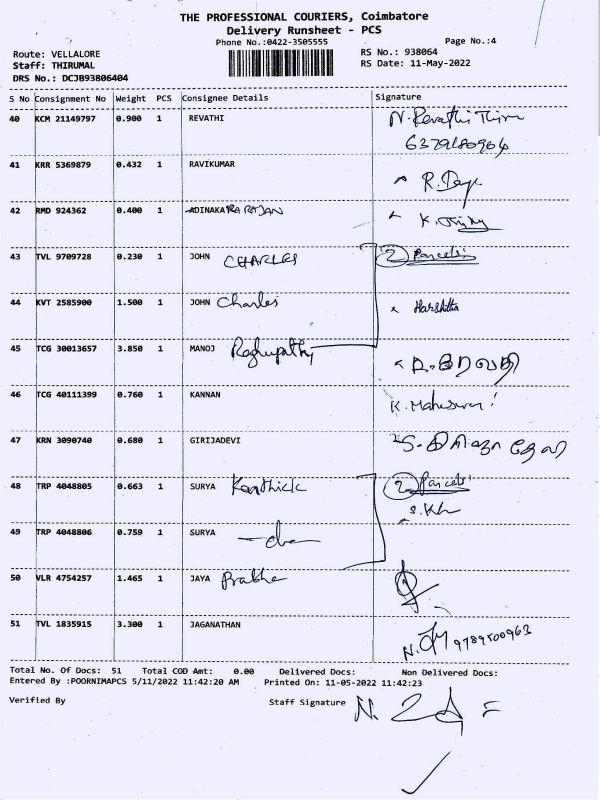 THE PROFESSIONAL COURIERS, Coimbatore
Delivery Runsheet - PCS
Phone No.:0422-3505555
Page No.:4
Route: VELLALORE
RS No.: 938064
Staff: THIRUMAL
RS Date: 11-May-2022
DRS No.: DCJB93806404
S No Consignment No Weight PCS Consignee Details Signature
40 KCM 21149797 0.900 1 REVATHI N. Revathi
41 KRR 5369879 0.432 1 RAVIKUMAR
42 RMD 924362 0.400 1 ADINAKARARAJAN
43 TVL 9709728 0.230 1 JOHN CHARLES 2 Parcels
44 KVT 2585900 1.500 1 JOHN Charles Harshitha
45 TCG 30013657 3.850 1 MANOJ Raghupathy
46 TCG 40111399 0.760 1 KANNAN
47 KRN 3090740 0.680 1 GIRIJADEVI
48 TRP 4048805 0.663 1 SURYA Karthick 2 Parcels
49 TRP 4048806 0.759 1 SURYA
50 VLR 4754257 1.465 1 JAYA Prabha
51 TVL 1835915 3.300 1 JAGANATHAN 9789500963
Total No. Of Docs: 51 Total COD Amt: 0.00 Delivered Docs: Non Delivered Docs:
Entered By :POORNIMAPCS 5/11/2022 11:42:20 AM Printed On: 11-05-2022 11:42:23
Verified By Staff Signature